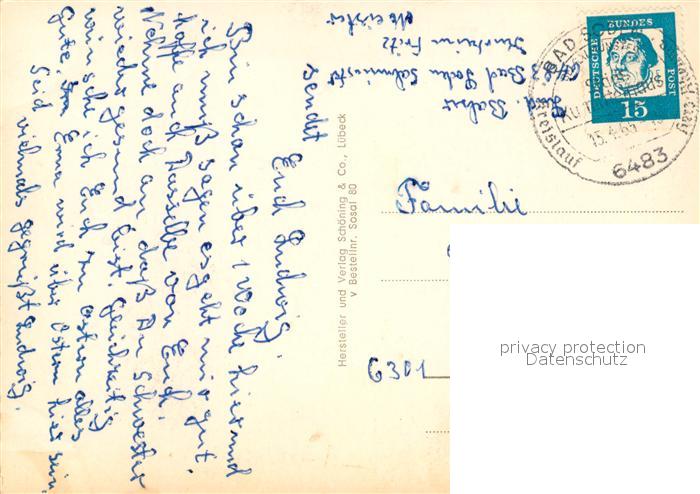 sendet Euch Ludwig.
Bin schon über 1 Woche hier und
ich muß sagen es geht mir gut.
hoffe auch Dasselbe von Euch.
Nehme doch an daß Du Schwester
wieder gesund bist. Gleichzeitig
wünsche ich Euch zu Ostern alles
Gute. Emma wird über Ostern hier sein.
Seid vielmals gegrüßt Ludwig.
Hersteller und Verlag Schöning & Co., Lübeck
v Bestellnr. Sosal 80
Bad
Fritz
BAD SO
Kreislauf
15.4.65
6483
DEUTSCHE BUNDES POST
15
Familie
6301
privacy protection
Datenschutz